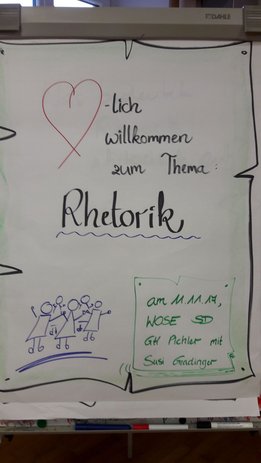 DAHLE
-lich
willkommen
zum Thema:
Rhetorik
am 11.11.17,
WOSE SD
GH Pichler mit
Susi Gradinger